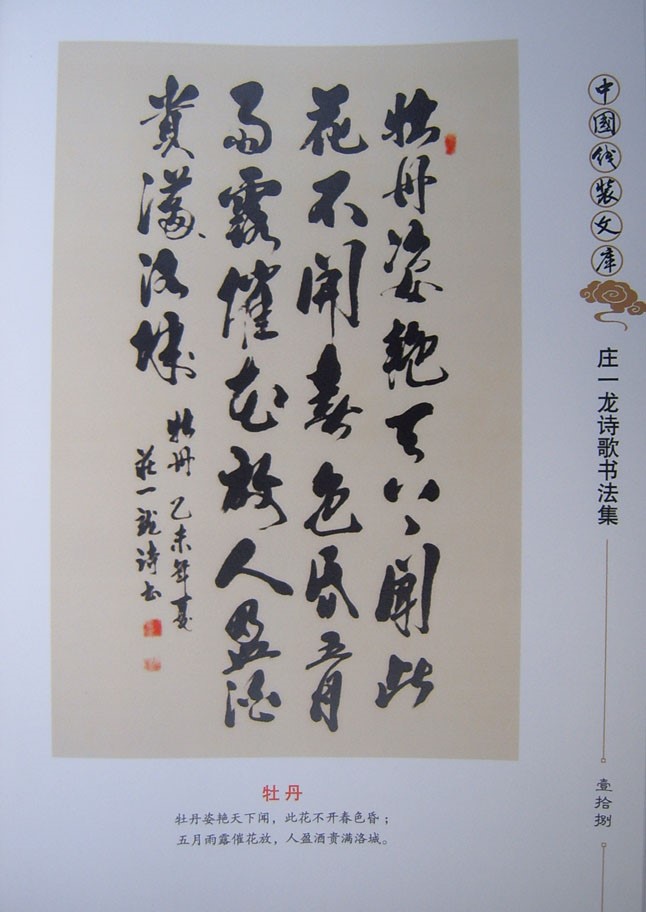 牡丹姿艳天下闻此
花不开春色昏五月
雨露催花放人盈酒
贵满洛城
牡丹 乙未年夏
莊一龙诗书
牡丹
牡丹姿艳天下闻，此花不开春色昏；
五月雨露催花放，人盈酒贵满洛城。
中国线装文库
庄一龙诗歌书法集
壹拾捌